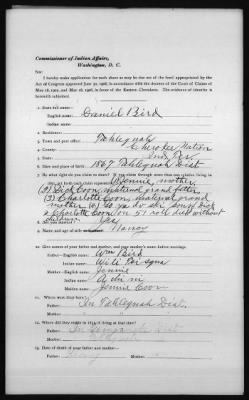 Commissioner of Indian Affairs,
Washington, D. C.
Sir:
I hereby make application for such share as may be due me of the fund appropriated by the
Act of Congress approved June 30, 1906, in accordance with the decrees of the Court of Claims of
May 18, 1905, and May 28, 1906, in favor of the Eastern Cherokees. The evidence of identity is
herewith subjoined.
1. State full name—
English name: Daniel Bird
Indian name:
2. Residence:
3. Town and post office: Tahlequah
4. County: Cherokee Nation
5. State: Ind. Ter.
6. Date and place of birth: 1867 Tahlequah Dist
7. By what right do you claim to share? If you claim through more than one relative living in
1851, set forth each claim separately: Jennie, mother
(2) Dick Coon, maternal grand father
(3) Charlotte Coon, maternal grand
mother
children
8. Are you married? Yes
9. Name and age of wife Nancy
10. Give names of your father and mother, and your mother's name before marriage.
Father—English name: Wm Bird
Indian name:
Mother—English name: Jennie
Indian name:
Maiden name: Jennie Coon
11. Where were they born?
Father: In Tahlequah Dist.
Mother:
12. Where did they reside in 1851, if living at that time?
Father:
Mother:
13. Date of death of your father and mother—
Father: Mother: